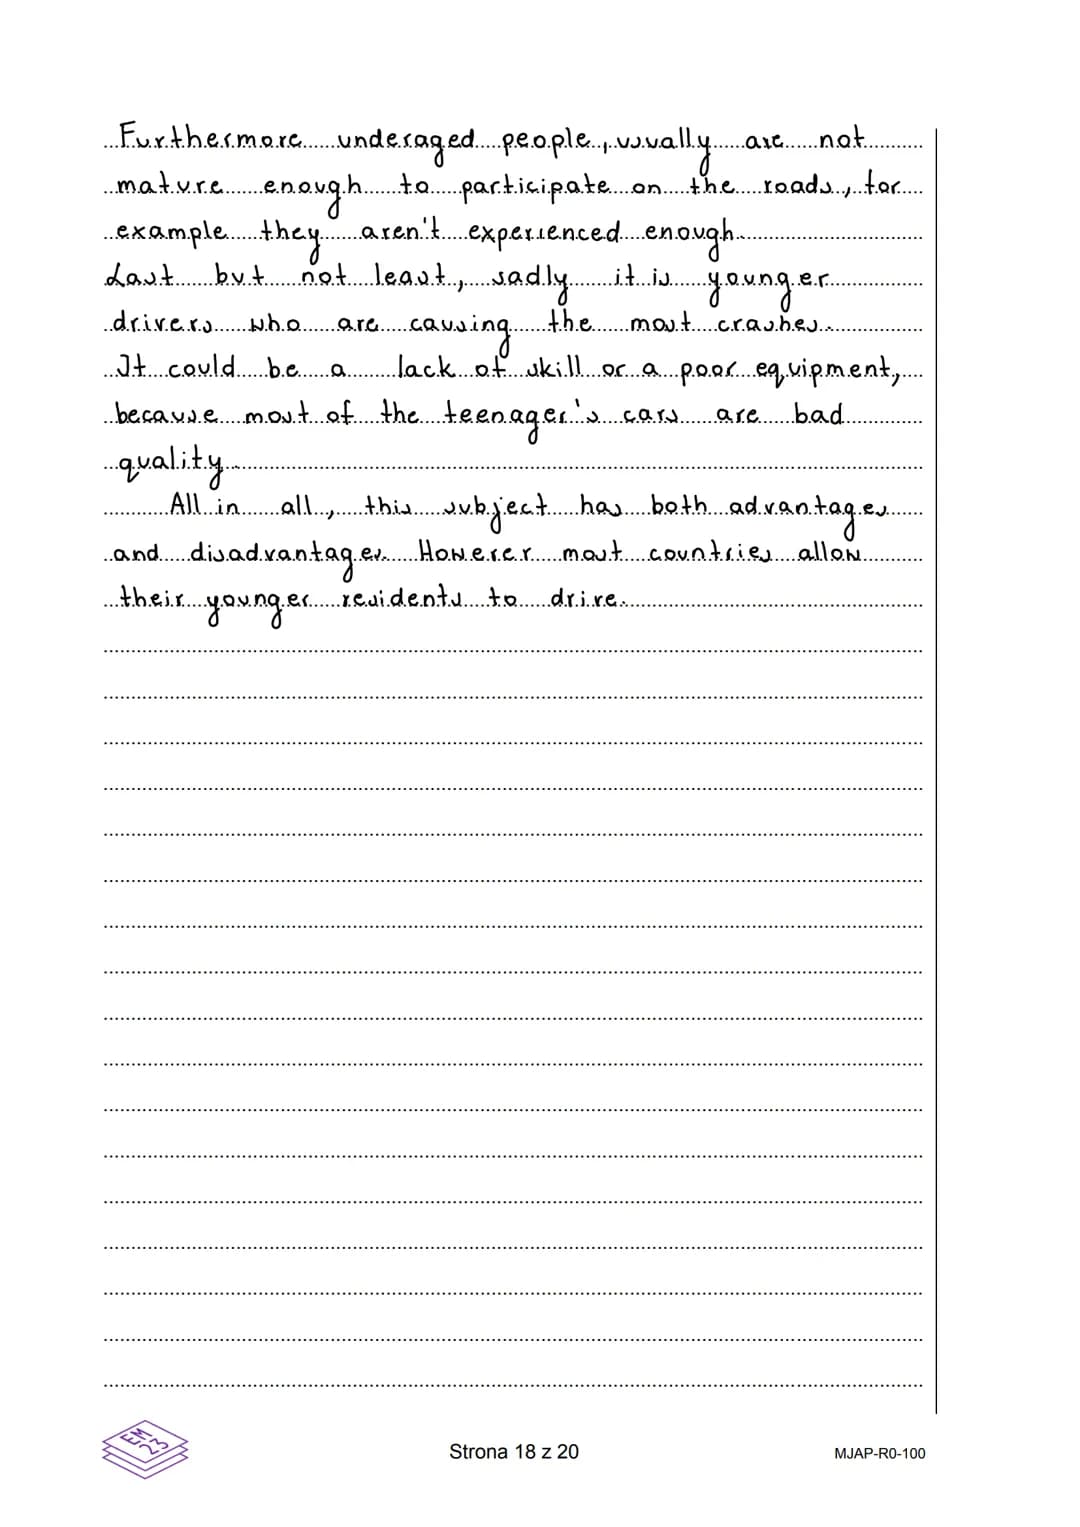 Furthermore underaged people, usually are not
mature enough to participate on the roads, for
example they aren't experienced enough.
Last but not least, sadly it is younger
drivers who are causing the most crashes.
It could be a lack of skill or a poor equipment,
because most of the teenager's cars are bad
quality.
All in all, this subject has both advantages
and disadvantages. However most countries allow
their younger residents to drive.
EM
23
Strona 18 z 20
MJAP-R0-100